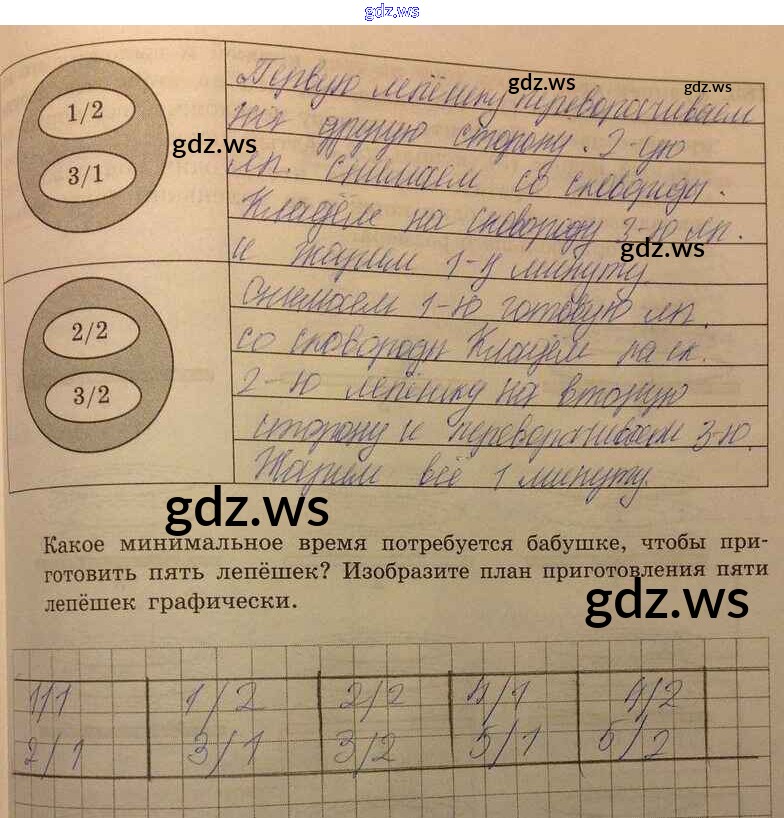 gdz.ws
1/2
3/1
Первую лепёшку переворачиваем
на другую сторону. 2-ую
леп. снимаем со сковороды.
Кладём на сковороду 3-ю леп.
и жарим 1-у минуту
снимаем 1-ю готовую леп.
со сковороды Кладём на ск.
2-ю лепёшку на вторую
сторону и переворачиваем 3-ю.
Жарим всё 1 минуту.
gdz.ws
gdz.ws
gdz.ws
gdz.ws
2/2
3/2
gdz.ws
Какое минимальное время потребуется бабушке, чтобы при-
готовить пять лепёшек? Изобразите план приготовления пяти
лепёшек графически.
gdz.ws
1/1 1/2 2/2 4/1 4/2
2/1 3/1 3/2 5/1 5/2